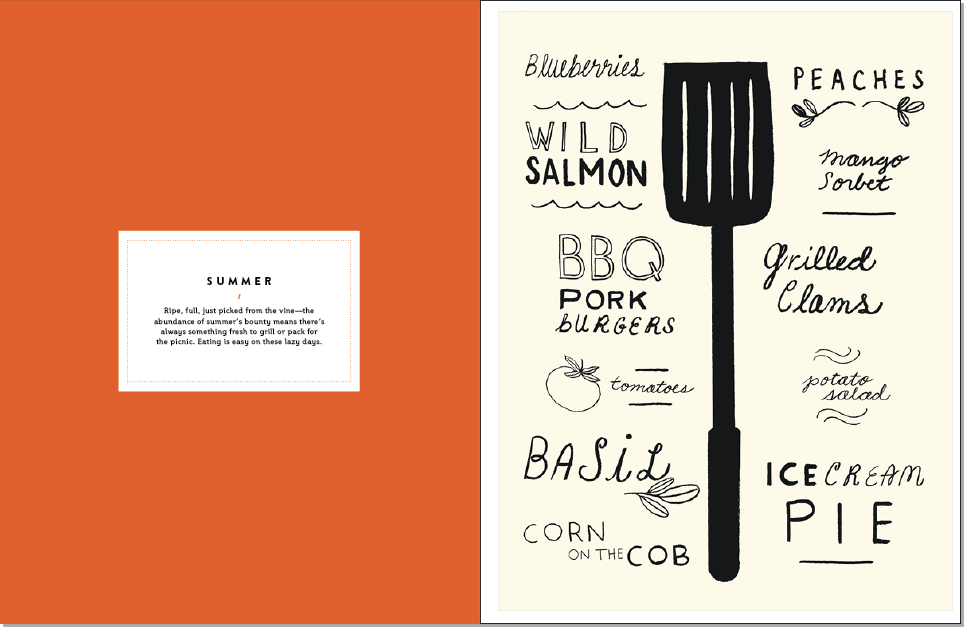 SUMMER
/
Ripe, full, just picked from the vine—the
abundance of summer's bounty means there's
always something fresh to grill or pack for
the picnic. Eating is easy on these lazy days.
Blueberries
WILD
SALMON
BBQ
PORK
BURGERS
tomatoes
BASIL
CORN
ON THE COB
PEACHES
mango
Sorbet
Grilled
Clams
potato
salad
ICE CREAM
PIE